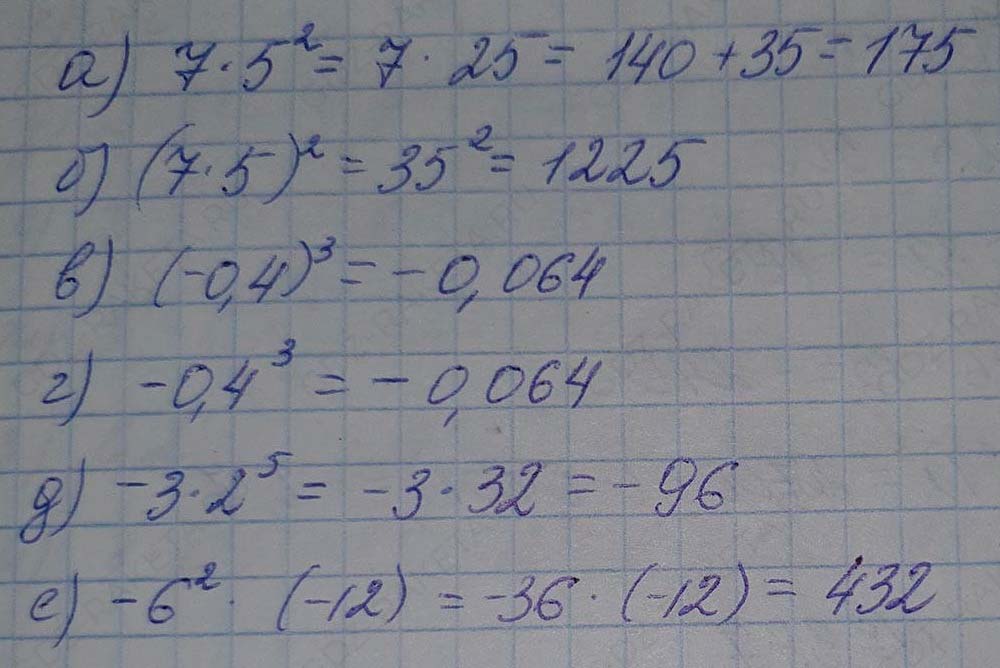 а) 7·5² = 7·25 = 140+35 = 175
б) (7·5)² = 35² = 1225
в) (-0,4)³ = -0,064
г) -0,4³ = -0,064
д) -3·2⁵ = -3·32 = -96
е) -6²·(-12) = -36·(-12) = 432